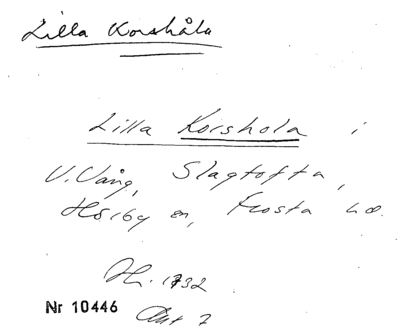 Lilla Korshåla
Lilla Korshola i
V. Vång, Slagtofta,
Hörby sn, Frosta hd.
Hi. 1732
Nr 10446 Akt 7